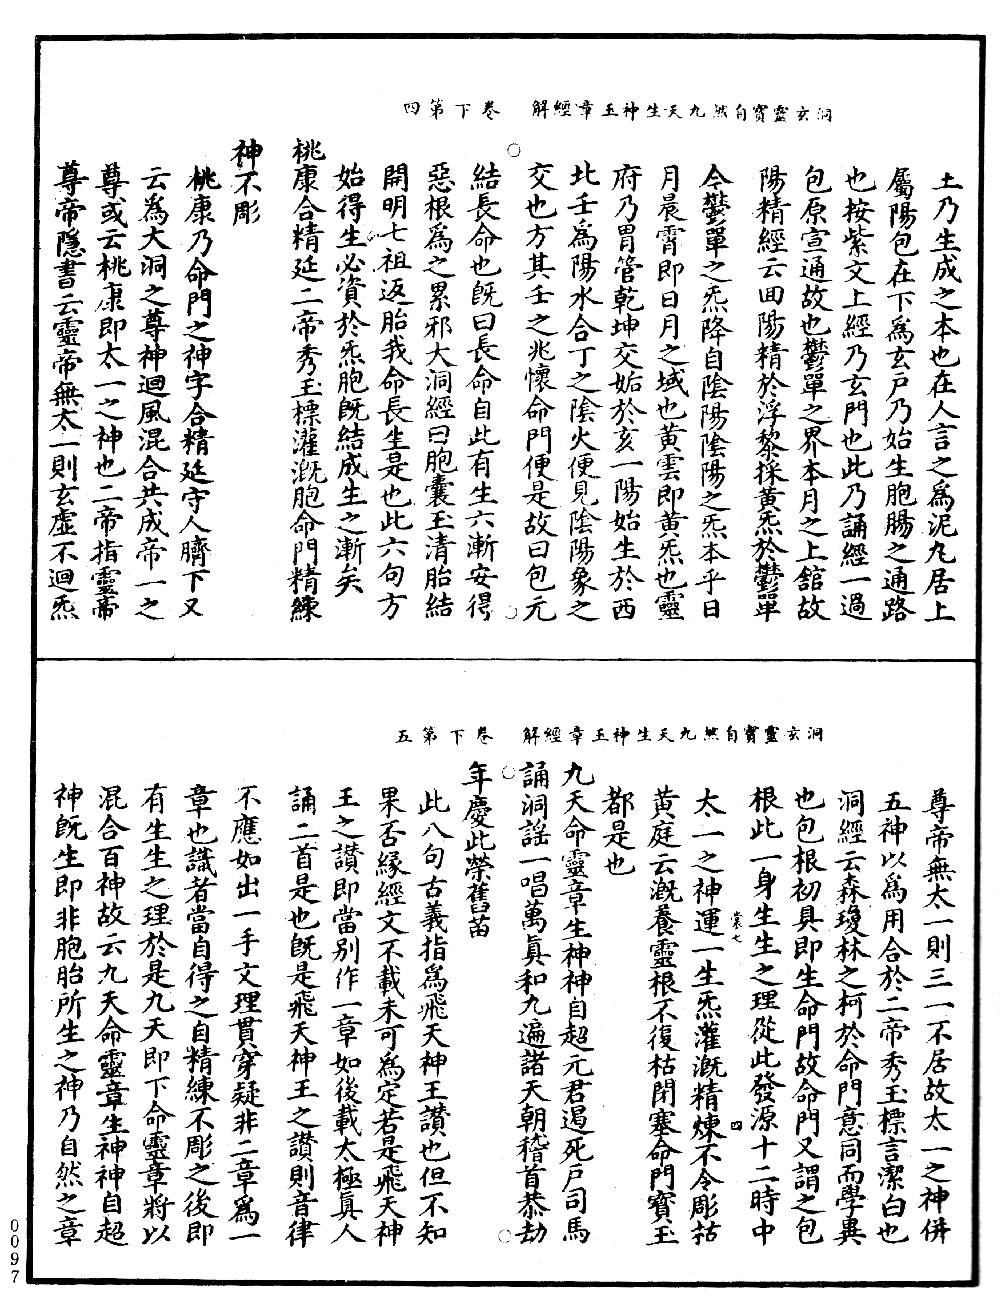 洞玄靈寶自然九天生神玉章經解　卷下第四
土乃生成之本也在人言之爲泥九居上
屬陽包在下爲玄戸乃始生胞腸之通路
也按紫文上經乃玄門也此乃誦經一過
包原宣通故也鬱單之界本月之上舘故
陽精經云囬陽精於浮黎採黄炁於鬱單
今鬱單之炁降自陰陽陰陽之炁本乎日
月晨霄即日月之域也黄雲即黄炁也靈
府乃胃管乾坤交姤於亥一陽始生於西
北壬爲陽水合丁之陰火便見陰陽象之
交也方其壬之兆懷命門便是故曰包元
結長命也旣曰長命自此有生六漸安得
惡根爲之累邪大洞經曰胞囊玉清胎結
開明七祖返胎我命長生是也此六句方
始得生必資於炁胞旣結成生之漸矣
桃康合精延二帝秀玉標灌漑胞命門精練
神不彫
桃康乃命門之神字合精延守人臍下又
云爲大洞之尊神迴風混合共成帝一之
尊或云桃康即太一之神也二帝指靈帝
尊帝隱書云靈帝無太一則玄虛不迴炁
洞玄靈寶自然九天生神玉章經解　卷下第五
尊帝無太一則三一不居故太一之神併
五神以爲用合於二帝秀玉標言潔白也
洞經云森瓊林之柯於命門意同而學異
也包根初具即生命門故命門又謂之包
根此一身生生之理從此發源十二時中
裳七　四
太一之神運一生炁灌漑精煉不令彫枯
黄庭云漑養靈根不復枯閉塞命門寳玉
都是也
九天命靈章生神神自超元君遏死戸司馬
誦洞謡一唱萬眞和九遍諸天朝稽首恭劫
年慶此榮舊苗
此八句古義指爲飛天神王讃也但不知
果否緣經文不載未可爲定若是飛天神
王之讃即當别作一章如後載太極眞人
誦二首是也旣是飛天神王之讃則音律
不應如出一手文理貫穿疑非二章爲一
章也識者當自得之自精練不彫之後即
有生生之理於是九天即下命靈章將以
混合百神故云九天命靈章生神神自超
神旣生即非胞胎所生之神乃自然之章
0097